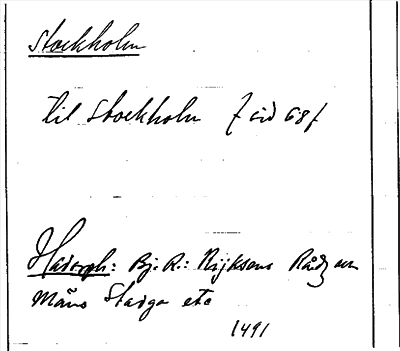 Stockholm
til Stockholm f sid 68 f
Hadorph: Bj. R.: Rijksens Rådz och
Mäns Stadga etc
1491